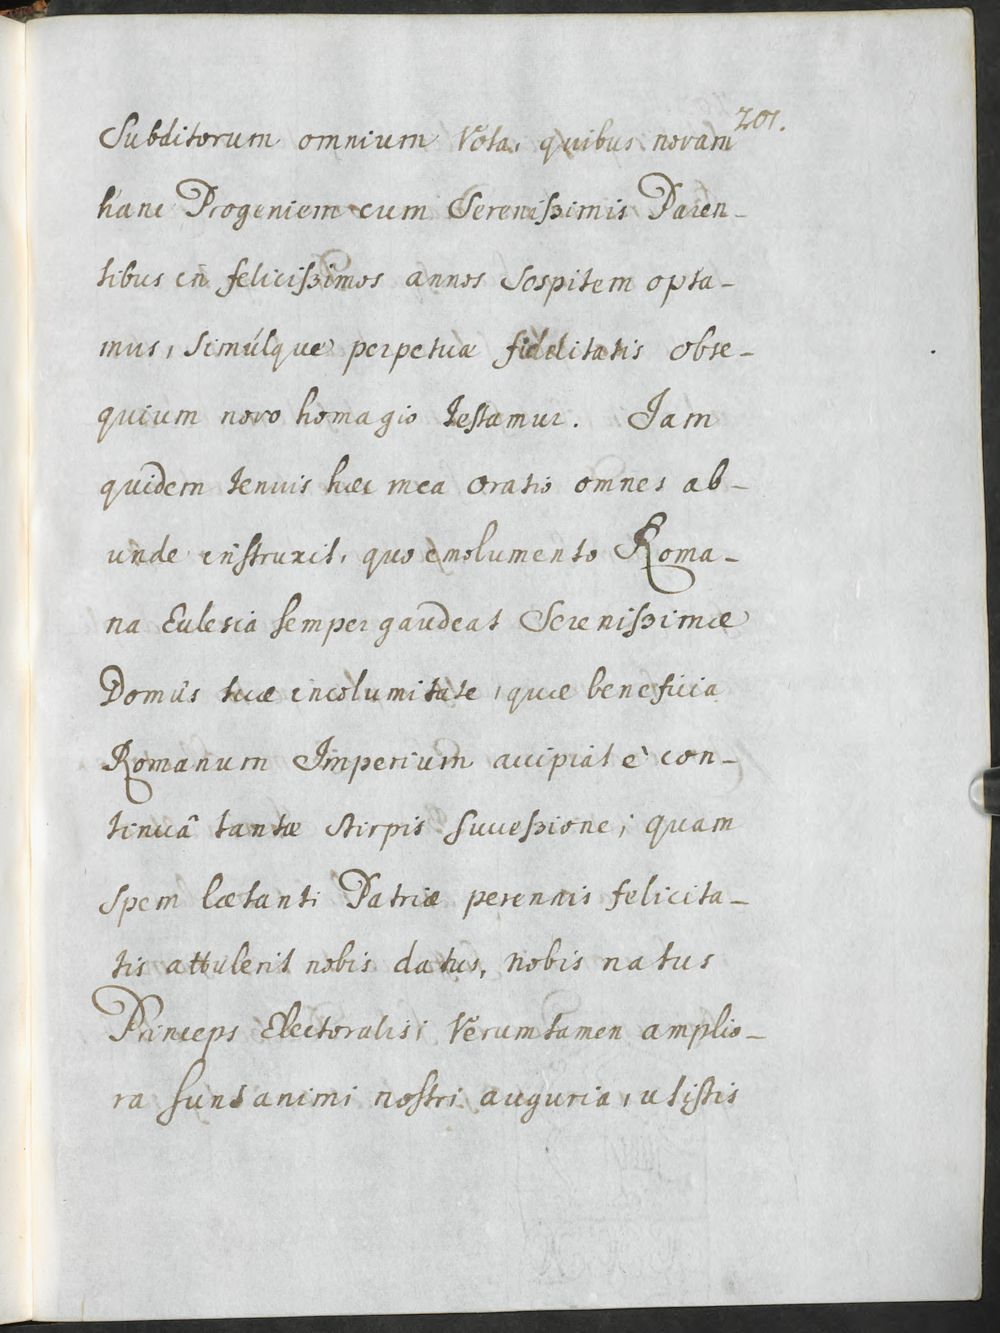 201.
Subditorum omnium Vota, quibus novam
hanc Progeniem cum Serenissimis Paren-
tibus in felicissimos annos Sospitem opta-
mus, Simúlque perpetuæ fidelitatis obse-
quium novo homagio testamur. Jam
quidem tenuis hæc mea oratio omnes ab-
unde instruxit, quo emolumento Roma-
na Eclesia semper gaudeat Serenissimæ
Domûs tuæ incolumitate, quæ beneficia
Romanum Imperium accipiat è con-
tinuâ tantæ Stirpis successione; quam
Spem lætanti Patriæ perennis felicita-
tis attulerit nobis datus, nobis natus
Princeps Electoralis; Verumtamen amplio-
ra sunt animi nostri auguria, ut istis